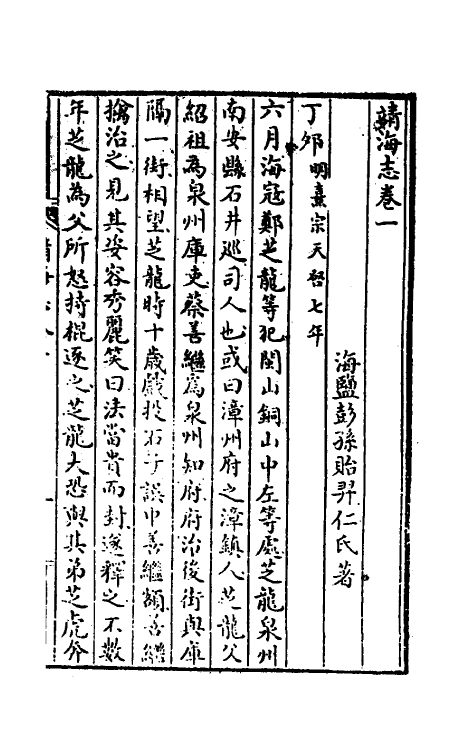 靖海志卷一
海鹽彭孫貽羿仁氏著
丁卯明熹宗天啓七年
六月海冦鄭芝龍等犯閩山銅山中左等處芝龍泉州
南安縣石井巡司人也或曰漳州府之漳鎮人芝龍父
紹祖為泉州庫吏蔡善繼為泉州知府府治後街與庫
隔一街相望芝龍時十歲戲投石子誤中善繼額善繼
擒治之見其姿容秀麗笑曰法當貴而封遂釋之不數
年芝龍為父所怒持棍逐之芝龍大恐與其弟芝虎奔